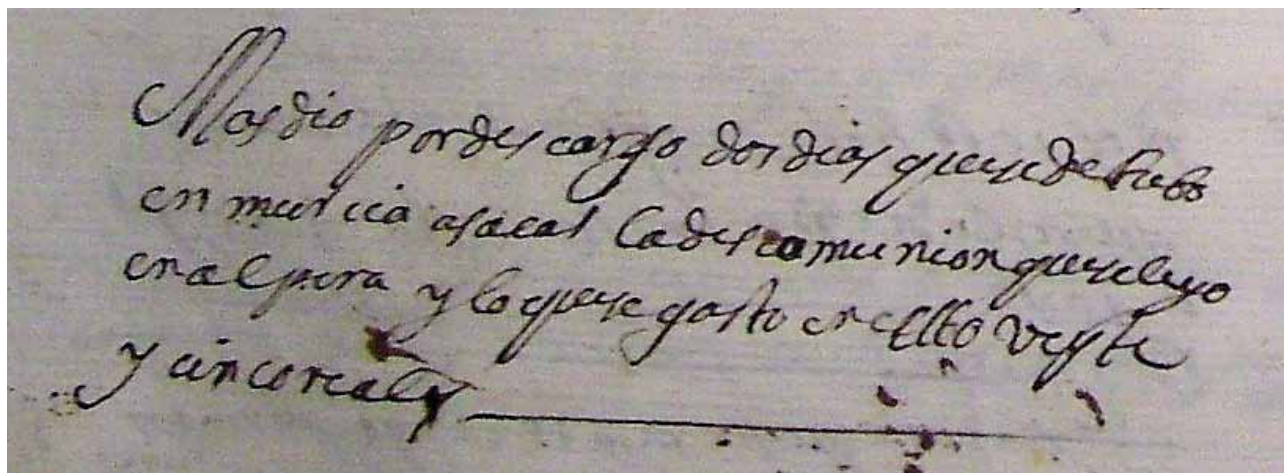 Mas dio por descargo dos dias que se detubo
en murcia a sacar la descomunion que se leyo
en alpera y lo que se gasto en ello veynte
y cinco reales